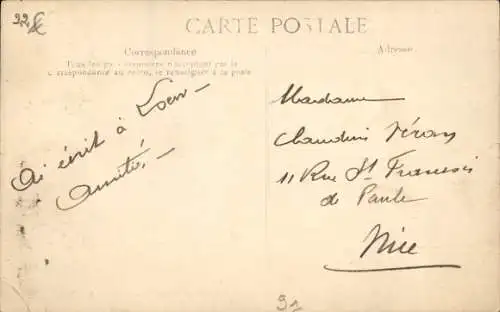 22 €
CARTE POSTALE
Correspondance
Tous les pays étrangers n'acceptent pas la
Correspondance au recto, se renseigner à la poste
Adresse
Ai écrit à
Amitié.
Madame
Claudius Véran
11 Rue St François
de Paule
Nice
91